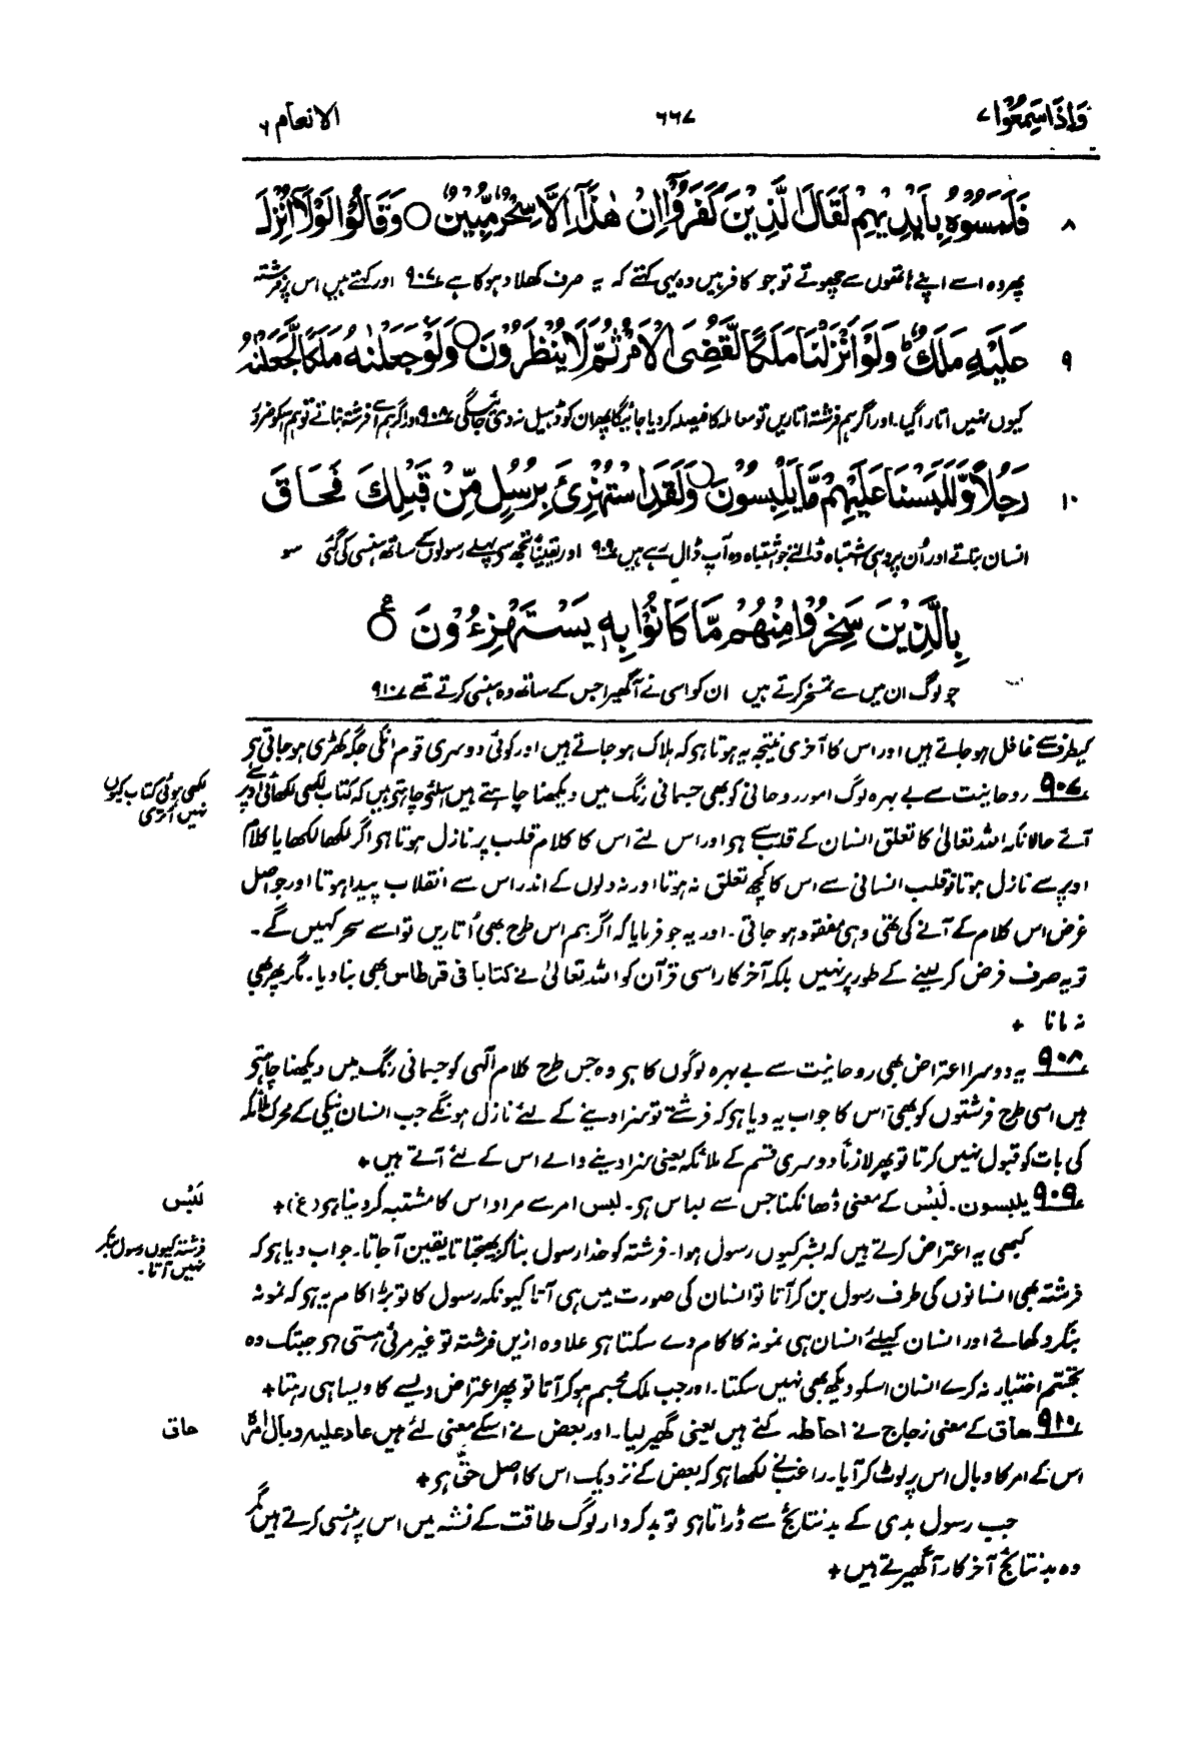 وَاِذَا سَمِعُوْا ۷
۶۶۷
الانعام ۶
۸ فَلَمَسُوْهُ بِاَيْدِيْهِمْ لَقَالَ الَّذِيْنَ كَفَرُوْۤا اِنْ هٰذَاۤ اِلَّا سِحْرٌ مُّبِيْنٌ ○ وَقَالُوْا لَوْلَاۤ اُنْزِلَ
پھر وہ اسے اپنے ہاتھوں سے چھوتے تو جو کافر ہیں وہ یہی کہتے کہ یہ صرف کھلا دہوکا ہے ۹۰۷ اور کہتے ہیں اس پر فرشتہ
۹ عَلَيْهِ مَلَكٌ ؕ وَلَوْ اَنْزَلْنَا مَلَكًا لَّقُضِيَ الْاَمْرُ ثُمَّ لَا يُنْظَرُوْنَ ○ وَلَوْ جَعَلْنٰهُ مَلَكًا لَّجَعَلْنٰهُ
کیوں نہیں اتارا گیا۔ اور اگر ہم فرشتہ اتاریں تو معاملہ کا فیصلہ کر دیا جائیگا پھر ان کو ڈہیل نہ دی جائیگی ۹۰۸ اور اگر ہم اسے فرشتہ بناتے تو ہم اسکو ضرور
۱۰ رَجُلًا وَّلَلَبَسْنَا عَلَيْهِمْ مَّا يَلْبِسُوْنَ ○ وَلَقَدِ اسْتُهْزِئَ بِرُسُلٍ مِّنْ قَبْلِكَ فَحَاقَ
انسان بناتے اور اُن پر وہی اشتباہ ڈالتے جو اشتباہ وہ آپ ڈال رہے ہیں ۹۰۹ اور یقیناً تجھ سے پہلے رسولوں کے ساتھ ہنسی کی گئی سو
بِالَّذِيْنَ سَخِرُوْا مِنْهُمْ مَّا كَانُوْا بِهٖ يَسْتَهْزِءُوْنَ ○ ع
جو لوگ ان میں سے تمسخر کرتے ہیں ان کو اسی نے آگھیرا جس کے ساتھ وہ ہنسی کرتے تھے ۹۱۰
کیطرف سے غافل ہو جاتے ہیں اور اس کا آخری نتیجہ یہ ہوتا ہو کہ ہلاک ہو جاتے ہیں اور کوئی دوسری قوم انکی جگہ کھڑی ہو جاتی ہو
۹۰۷ روحانیت سے بے بہرہ لوگ امور روحانی کو بھی جسمانی رنگ میں دیکھنا چاہتے ہیں اسلئے چاہتے ہیں کہ کتاب لکھی لکھائی اوپر سے
لکھی ہوئی کتاب کیوں
نہیں اتری
آئے حالانکہ اللہ تعالیٰ کا تعلق انسان کے قلب سے ہو اور اس لئے اس کا کلام قلب پر نازل ہوتا ہو اگر لکھا لکھایا کلام
اوپر سے نازل ہوتا تو قلب انسانی سے اس کا کچھ تعلق نہ ہوتا اور نہ دلوں کے اندر اس سے انقلاب پیدا ہوتا اور جو اصل
غرض اس کلام کے آنے کی تھی وہی مفقود ہو جاتی۔ اور یہ جو فرمایا کہ اگر ہم اس طرح بھی اُتاریں تو اسے سحر کہیں گے۔
تو یہ صرف فرض کر لینے کے طور پر نہیں بلکہ آخر کار اسی قرآن کو اللہ تعالیٰ نے کتابا فی قرطاس بھی بنا دیا۔ مگر پھر بھی
نہ مانا +
۹۰۸ یہ دوسرا اعتراض بھی روحانیت سے بے بہرہ لوگوں کا ہو وہ جس طرح کلام الٰہی کو جسمانی رنگ میں دیکھنا چاہتے
ہیں اسی طرح فرشتوں کو بھی اس کا جواب یہ دیا ہو کہ فرشتے تو سزا دینے کے لئے نازل ہونگے جب انسان نیکی کے محرک ملائکہ
کی بات کو قبول نہیں کرتا تو پھر لازماً دوسری قسم کے ملائکہ یعنی سزا دینے والے اس کے لئے آتے ہیں +
۹۰۹ یلبسون۔ لَبْس کے معنی ڈھانکنا جس سے لباس ہو۔ لبس امر سے مراد اس کا مشتبہ کر دینا ہو (غ) +
لَبْس
کبھی یہ اعتراض کرتے ہیں کہ بشر کیوں رسول ہوا۔ فرشتہ کو خدا رسول بنا کر بھیجتا تا یقین آجاتا۔ جواب دیا ہو کہ
فرشتہ کیوں رسول بنکر
نہیں آتا۔
فرشتہ بھی انسانوں کی طرف رسول بن کر آتا تو انسان کی صورت میں ہی آتا کیونکہ رسول کا تو بڑا کام یہ ہو کہ نمونہ
بنکر دکھائے اور انسان کیلئے انسان ہی نمونہ کا کام دے سکتا ہو علاوہ ازیں فرشتہ تو غیر مرئی ہستی ہو جبتک وہ
تجسّم اختیار نہ کرے انسان اسکو دیکھ بھی نہیں سکتا۔ اور جب ملک مجسم ہو کر آتا تو پھر اعتراض ویسے کا ویسا ہی رہتا +
۹۱۰ حاق کے معنی زجاج نے احاطہ کئے ہیں یعنی گھیر لیا۔ اور بعض نے اسکے معنی لئے ہیں عاد علیہ وبال امرہ
حاق
اس کے امر کا وبال اس پر لوٹ کر آیا۔ راغب نے لکھا ہو کہ بعض کے نزدیک اس کا اصل حقّ ہو +
جب رسول بدی کے بد نتائج سے ڈراتا ہو تو بد کردار لوگ طاقت کے نشہ میں اس پر ہنسی کرتے ہیں مگر
وہ بد نتائج آخر کار آگھیرتے ہیں +